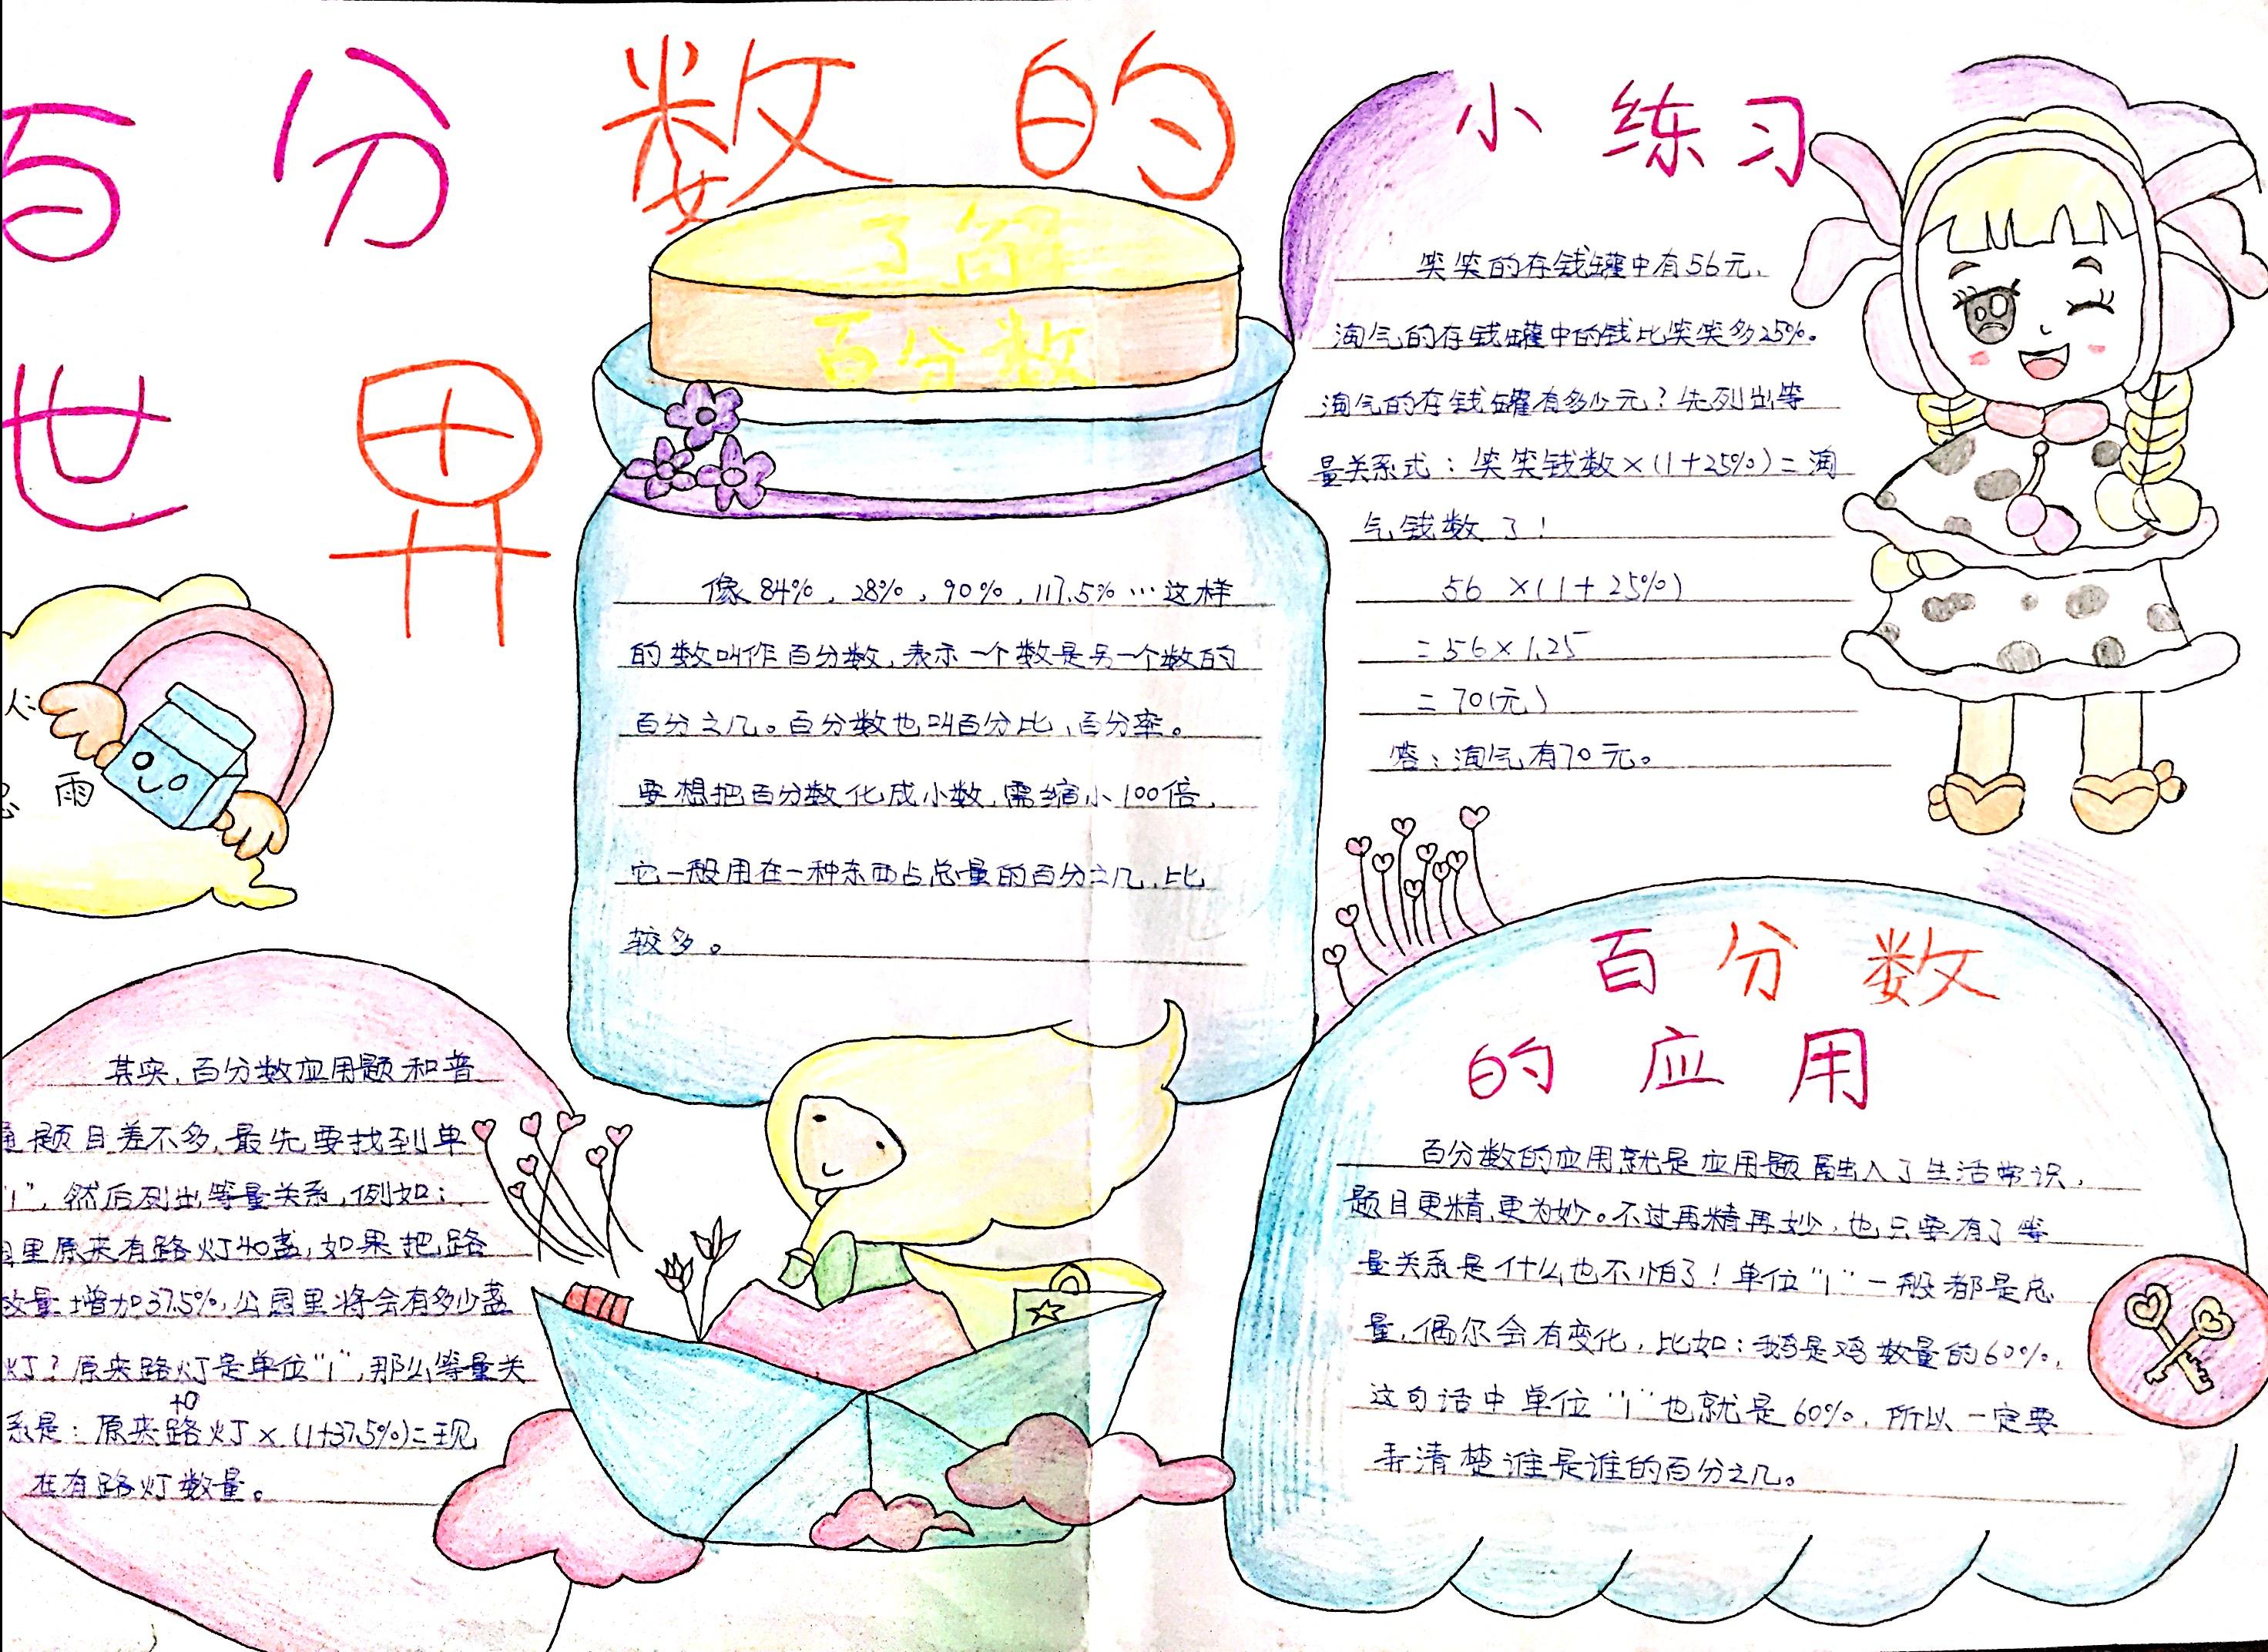 百分数的
世界
了解
百分数
像84%，28%，90%，117.5%…这样
的数叫作百分数，表示一个数是另一个数的
百分之几。百分数也叫百分比、百分率。
要想把百分数化成小数，需缩小100倍，
它一般用在一种东西占总量的百分之几，比
较多。
小练习
笑笑的存钱罐中有56元，
淘气的存钱罐中的钱比笑笑多25%。
淘气的存钱罐有多少元？先列出等
量关系式：笑笑钱数×(1+25%)=淘
气钱数了！
56×(1+25%)
=56×1.25
=70(元)
答：淘气有70元。
人:
雨
其实，百分数应用题和普
通题目差不多，最先要找到单
"1"，然后列出等量关系，例如：
里原来有路灯40盏，如果把路
数量增加37.5%，公园里将会有多少盏
灯？原来路灯是单位"1"，那么等量关
系是：原来路灯×(1+37.5%)=现
在有路灯数量。
百分数
的应用
百分数的应用就是应用题融入了生活常识，
题目更精，更为妙。不过再精再妙，也只要有了等
量关系是什么也不怕了！单位"1"一般都是总
量，偶尔会有变化，比如：鹅是鸡数量的60%，
这句话中单位"1"也就是60%，所以一定要
弄清楚谁是谁的百分之几。